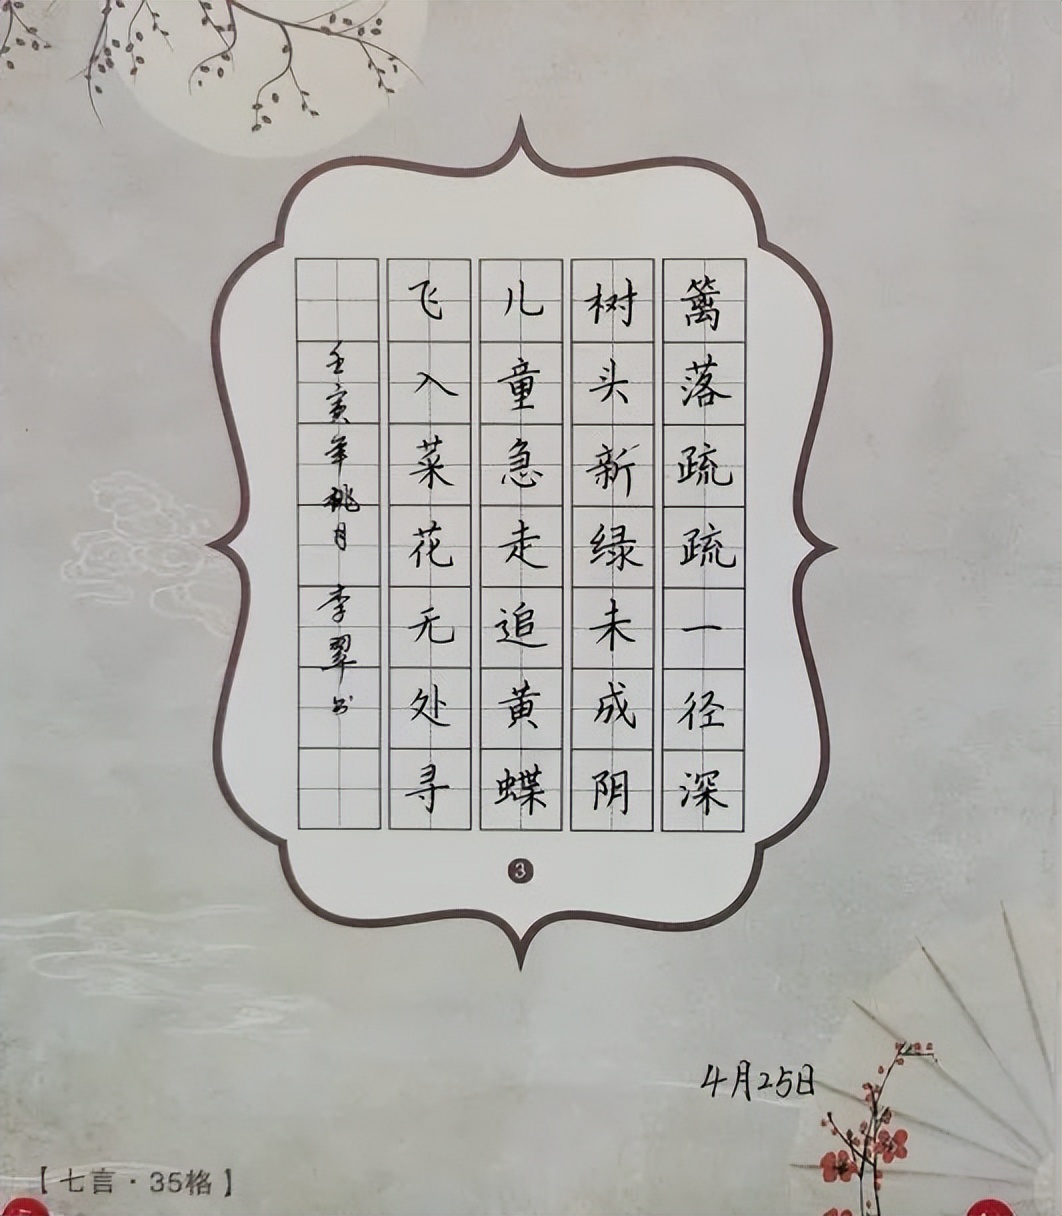 篱落疏疏一径深
树头新绿未成阴
儿童急走追黄蝶
飞入菜花无处寻
壬寅年桃月 李翠书
3
4月25日
【七言·35格】